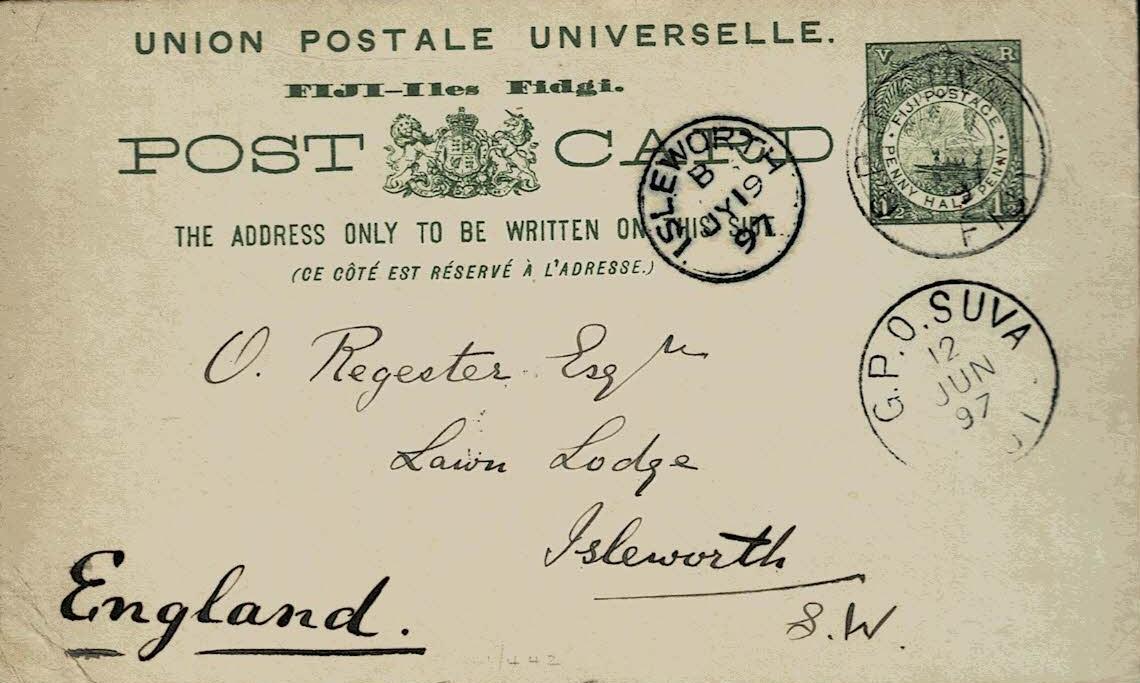 UNION POSTALE UNIVERSELLE.
FIJI–Iles Fidgi.
POST CARD
THE ADDRESS ONLY TO BE WRITTEN ON THIS SIDE.
(CE CÔTÉ EST RÉSERVÉ À L'ADRESSE.)
V R
FIJI POSTAGE
PENNY HALF PENNY
1½ 1½
ISLEWORTH
B
JY 19
97
G.P.O. SUVA
12
JUN
97
O. Regester Esqre
Lawn Lodge
Isleworth
S.W.
England.
1/442